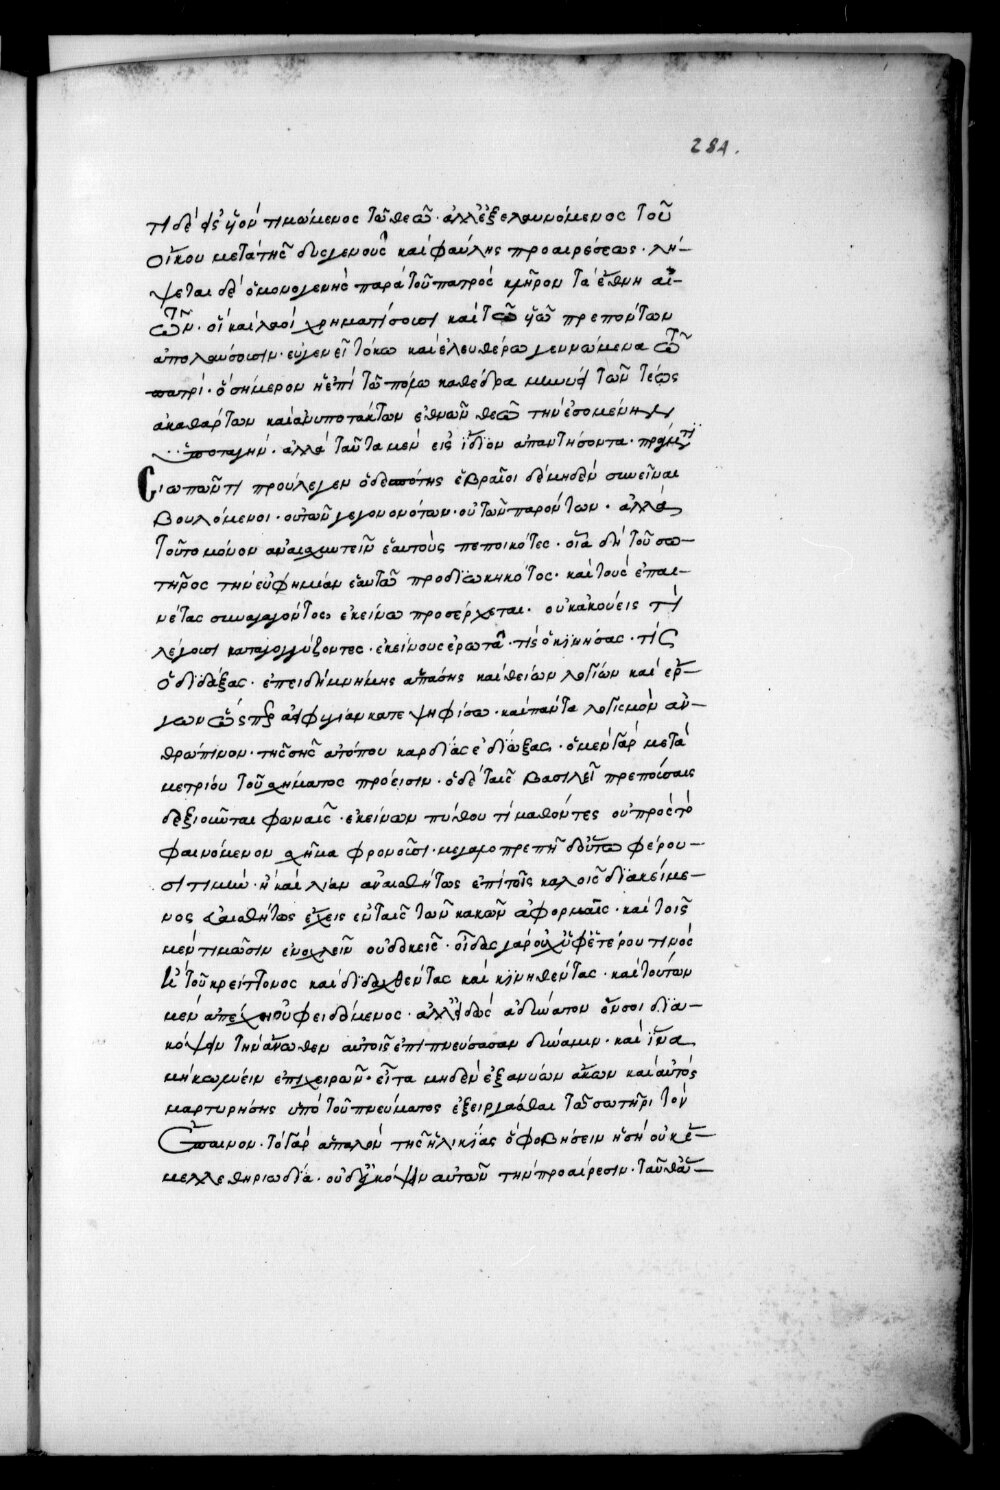 284.
τι δὲ ὡς υἱὸν τιμώμενος τῶ θεῶ· ἀλλ' ἐξελαυνόμενος τοῦ
οἴκου μετὰ τῆς δυσγενοῦς καὶ φαύλης προαιρέσεως· λή-
ψεται δὲ ὁ μονογενὴς παρὰ τοῦ πατρὸς κλῆρον τὰ ἔθνη αὐ-
τῶν· οἳ καὶ λαοὶ χρηματίσουσι καὶ τῶν υἱῶ πρεπόντων
ἀπολαύσουσιν· εὐγενεῖ τόκω καὶ ἐλευθέρω γεννώμενα τῶ
πατρί· ὁ σήμερον ἡ ἐπὶ τῶ πώλω καθέδρα τῶν τέως
ἀκαθάρτων καὶ ἀνυποτάκτων ἐθνῶν θεῶ τὴν ἐσομένην
ὑποταγὴν· ἀλλὰ ταῦτα μὲν εἰς ἴδιον ἀπαντήσοντα
Σιωπῶντι προύλεγεν ὁ δεσπότης ἑβραῖοι δὲ μηδὲν συνεῖναι
βουλόμενοι· οὐ τῶν γεγονονότων· οὐ τῶν παρόντων· ἀλλὰ
τοῦτο μόνον ἀναισχυντεῖν ἑαυτοὺς πεποικότες· οἷα δὴ τοῦ σω-
τῆρος τὴν εὐφημίαν ἑαυτῶ προδιωκηκότος· καὶ τοὺς ἐπαι-
νέτας συναγαγόντος ἐκείνω προσέρχεται· οὐκ ἀκούεις τί
λέγουσι καταγογγύζοντες· ἐκείνους ἐρωτᾶ· τίς ὁ κινήσας· τίς
ὁ διδάξας· ἐπειδὴ μνήμης ἁπάσης καὶ θείων λογίων καὶ ἔρ-
γων κατεψηφίσω· καὶ πάντα λογισμὸν ἀν-
θρώπινον· τῆς σῆς ἀτόπου καρδίας ἐδίωξας· ὁ μὲν γὰρ μετὰ
μετρίου τοῦ σχήματος πρόεισιν· ὁ δὲ ταῖς βασιλεῖ πρεπούσαις
δεξιοῦνται φωναῖς· ἐκείνων πύθου τί μαθόντες οὐ πρὸς τὸ
φαινόμενον σχῆμα φρονοῦσι· μεγαλοπρεπῆ δ' οὕτω φέρου-
σι τιμὴν· ἢ καὶ λίαν ἀναισθήτως ἐπὶ τοῖς καλοῖς διακείμε-
νος εὐαισθήτως ἔχεις ἐν ταῖς τῶν κακῶν ἀφορμαῖς· καὶ τοῖς
μὲν τιμῶσιν ἐνοχλεῖν οὐ δοκεῖς· οἶδας γὰρ οὐχ ὑφ' ἑτέρου τινὸς
ἢ τοῦ κρείττονος καὶ διδαχθέντας καὶ κινηθέντας· καὶ τούτων
μὲν ἀπέχει οὐ φειδόμενος· ἀλλ' εἰδὼς ἀδύνατον ὄν σοι δια-
κόψαι τὴν ἄνωθεν αὐτοῖς ἐπιπνεύσασαν δύναμιν· καὶ ἵνα
μὴ κωλύειν ἐπιχειρῶν· εἶτα μηδὲν ἐξανύων ἄκων καὶ αὐτὸς
μαρτυρήσης ὑπὸ τοῦ πνεύματος ἐξειργάσθαι τῶ σωτῆρι τὸν
ἔπαινον· τὸ γὰρ ἁπαλὸν τῆς ἡλικίας ὁ φοβήσειν ἡ σὴ οὐκ ἔ-
μελλε θηριωδία· οὐ διακόψαι αὐτῶν τὴν προαίρεσιν· ταῦθ'